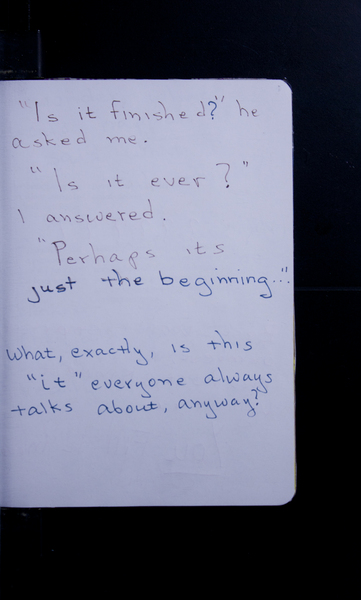 "Is it finished?" he
asked me.
"Is it ever?"
I answered.
"Perhaps its
just the beginning..."
What, exactly, is this
"it" everyone always
talks about, anyway?